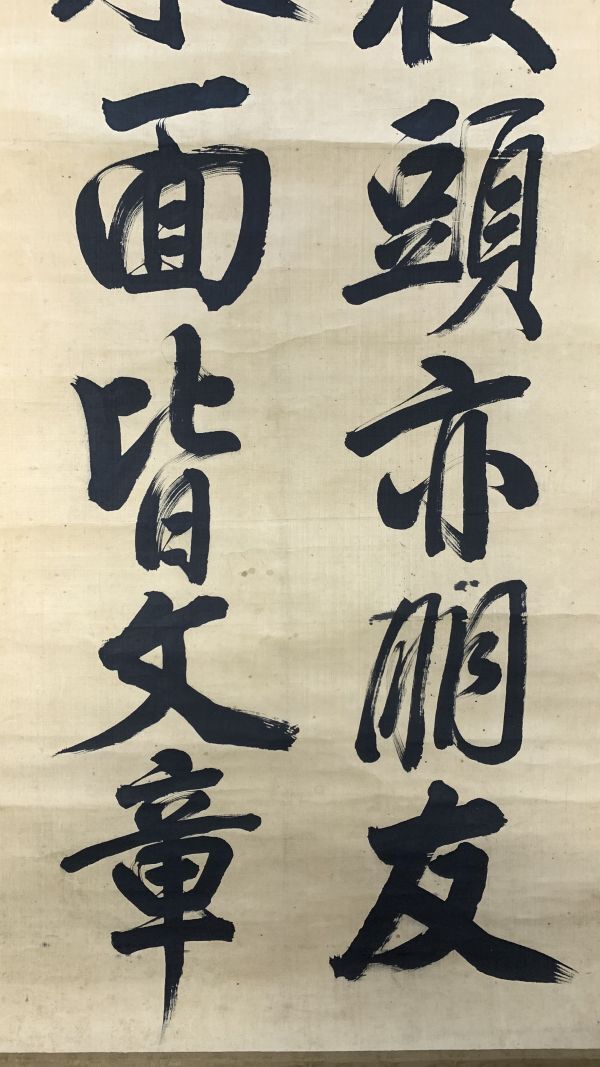 頭亦朋友
面皆文章